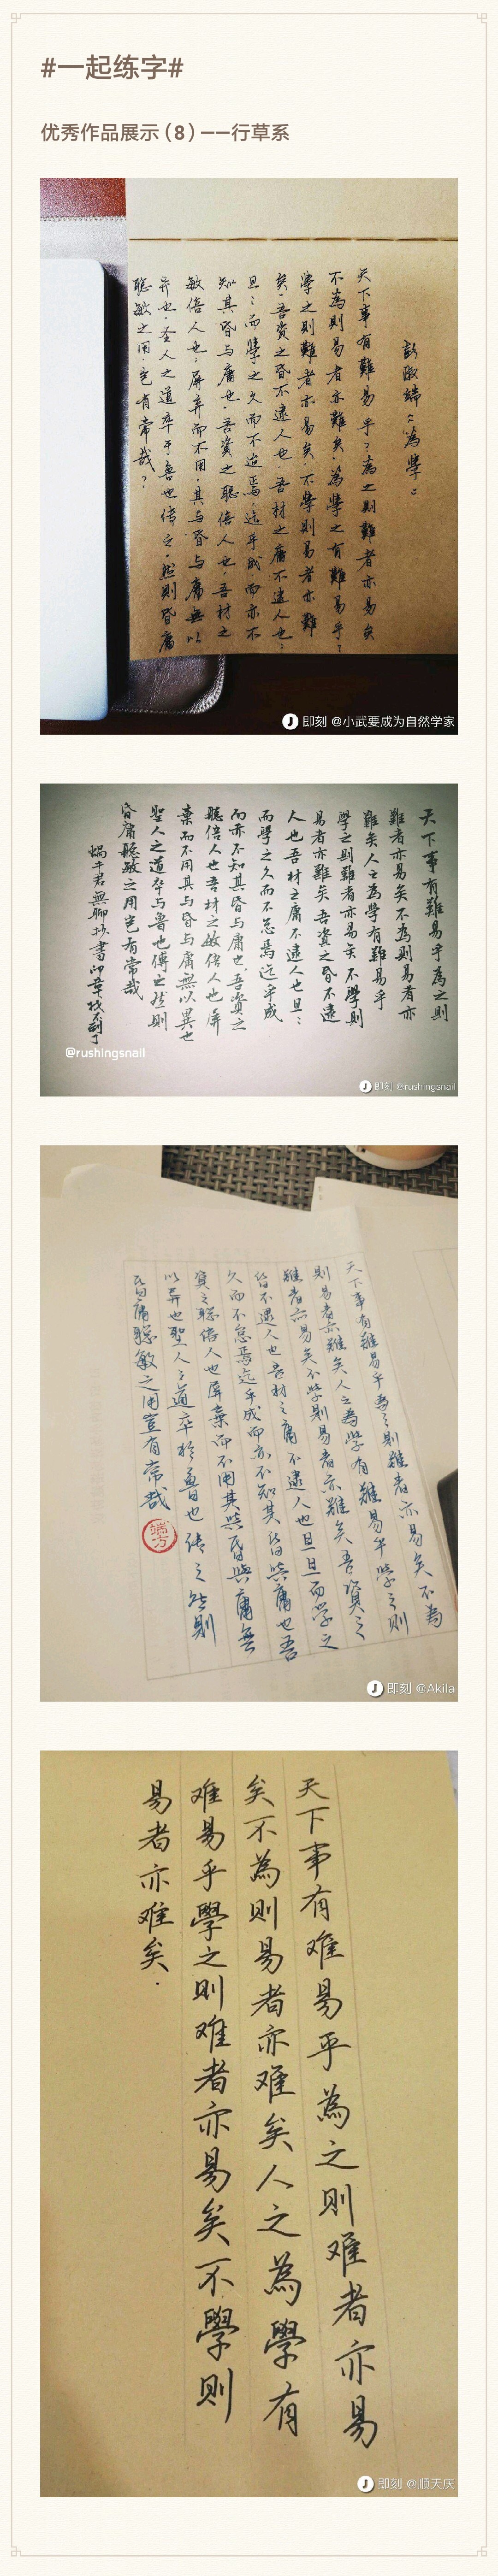 #一起练字#
优秀作品展示（8）——行草系
彭淑端《為學》
天下事有難易乎？為之則難者亦易矣
不為則易者亦難矣·為學之有難易乎？
學之則難者亦易矣·不學則易者亦難
矣·吾資之昏不逮人也·吾材之庸不逮人也；
旦旦而學之久而不怠焉·迄乎成而亦不
知其昏与庸也·吾資之聪倍人也·吾材之
敏倍人也·屏弃而不用·其与昏与庸無以
异也·圣人之道卒于魯也傳之·然則昏庸
聪敏之用·岂有常哉？
J 即刻 @小武要成为自然学家
天下事有難易乎為之則
難者亦易矣不為則易者亦
難矣人之為學有難易乎
學之則難者亦易矣不學則
易者亦難矣吾資之昏不逮
人也吾材之庸不逮人也旦旦
而學之久而不怠焉迄乎成
而亦不知其昏与庸也吾資之
聰倍人也吾材之敏倍人也屏
棄而不用其与昏与庸無以異也
聖人之道卒与魯也傳之然則
昏庸聰敏之用岂有常哉
蝸牛君無聊抄書印章找不到了
@rushingsnail
J 即刻 @rushingsnail
天下事有難易乎為之則難者亦易矣不為
則易者亦難矣人之為学有難易乎学之則
難者亦易矣不学則易者亦難矣吾資之
昏不逮人也吾材之庸不逮人也旦旦而学之
久而不怠焉迄乎成而亦不知其昏與庸也吾
資之聰倍人也屏棄而不用其與昏與庸無
以异也聖人之道卒於魯也傳之然則
昏庸聰敏之用豈有常哉
端方
J 即刻 @Akila
天下事有难易乎為之則难者亦易
矣不為則易者亦难矣人之為學有
难易乎學之則难者亦易矣不學則
易者亦难矣.
J 即刻 @顺天庆